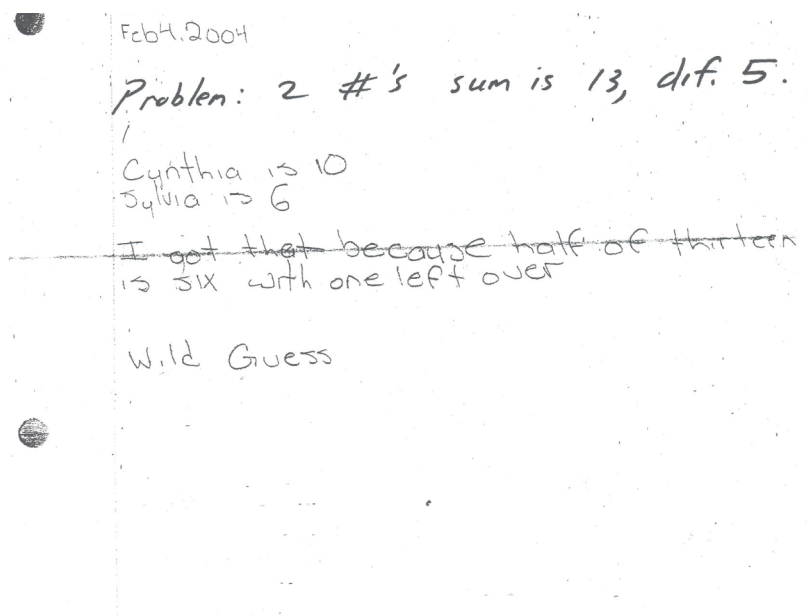 Feb4.2004
Problem: 2 #'s sum is 13, dif. 5.
Cynthia is 10
Sylvia is 6
I got that because half of thirteen
is six with one left over
Wild Guess